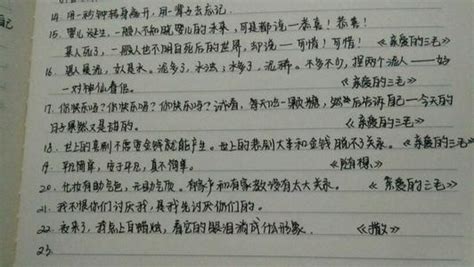 己
14. 用一秒钟转身离开，用一辈子去忘记.
15. 婴儿诞生，一般人不知晓婴儿的未来，可是都说一恭喜！恭喜！
某人死了，一般人也不明白死后的世界，却说一可惜！可惜！《亲爱的三毛》
16. 男人是泥，女人是水。泥多了，水浊；水多了，泥稀。不多不少，捏两个泥人——好
一对神仙眷侣。《亲爱的三毛》
17. 你快乐吗？你快乐吗？你快乐吗？试着，每天吃一颗糖，然后告诉自己一今天的
日子果然又是甜的。《亲爱的三毛》
18. 世上的喜剧不需要金钱就能产生。世上的悲剧大半和金钱脱不了关系。《亲爱的三毛》
19. 平凡简单，安于平凡，真不简单。《随想》
20. 化妆有助气色，无助气质。有家产和有家教没有太大关系。《亲爱的三毛》
21. 我不恨你们讨厌我，是我先讨厌你们的.
22. 夜来了，我点上白蜡烛，看它的眼泪淌成什么形象. 《撒
23.